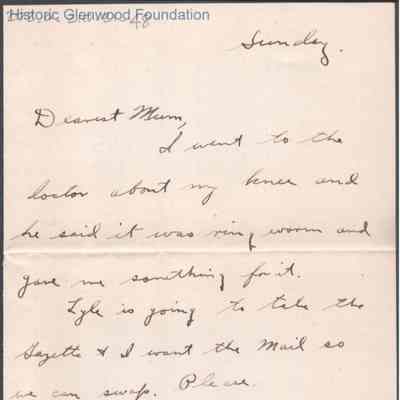 Historic Glenwood Foundation
Sunday.
Dearest Mum,
I went to the
doctor about my knee and
he said it was ring worm and
gave me somthing for it.
Lyle is going to take the
Gazette & I want the Mail so
we can swap. Please.